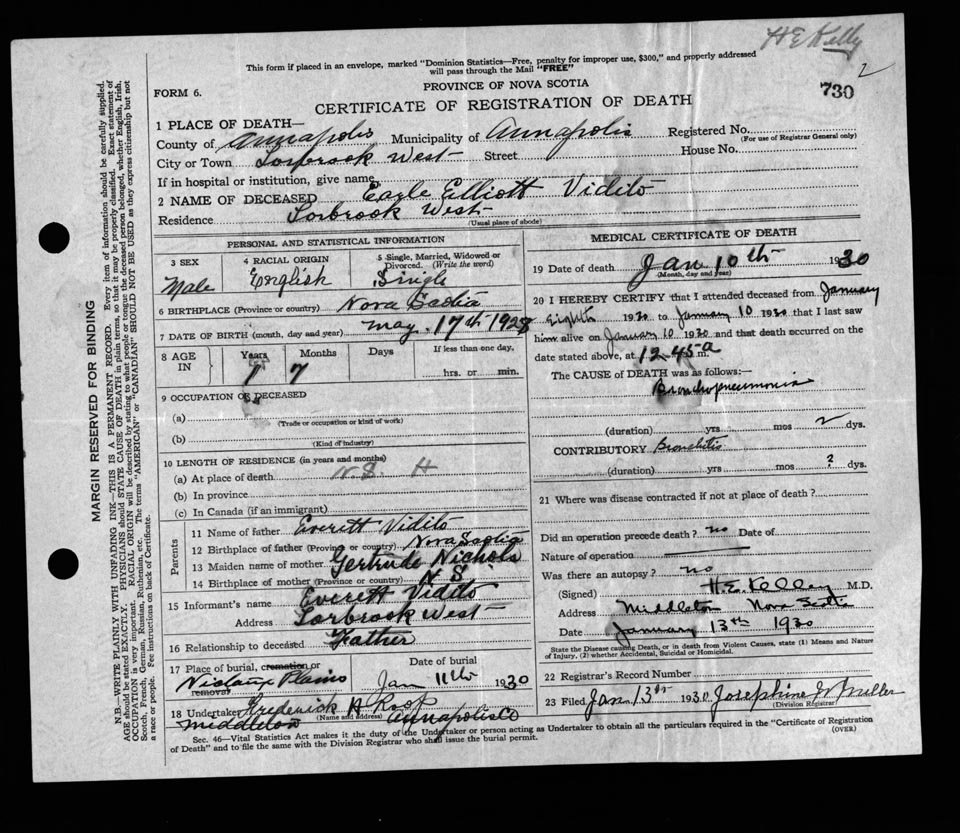 H E Kelly
2
This form if placed in an envelope, marked "Dominion Statistics—Free, penalty for improper use, $300," and properly addressed
will pass through the Mail "FREE"
PROVINCE OF NOVA SCOTIA
730
FORM 6.
CERTIFICATE OF REGISTRATION OF DEATH
1 PLACE OF DEATH—
County of Annapolis Municipality of Annapolis Registered No.
(For use of Registrar General only)
City or Town Torbrook West Street House No.
If in hospital or institution, give name
2 NAME OF DECEASED Eagle Elliott Vidito
Residence Torbrook West
(Usual place of abode)
PERSONAL AND STATISTICAL INFORMATION
3 SEX 4 RACIAL ORIGIN 5 Single, Married, Widowed or
Divorced. (Write the word)
Male English Single
6 BIRTHPLACE (Province or country) Nova Scotia
7 DATE OF BIRTH (month, day and year) May. 17th 1928
8 AGE IN Years Months Days If less than one day,
1 7 hrs. or min.
9 OCCUPATION OF DECEASED
(a)
(Trade or occupation or kind of work)
(b)
(Kind of industry)
10 LENGTH OF RESIDENCE (in years and months)
(a) At place of death N.S. H
(b) In province
(c) In Canada (if an immigrant)
Parents
11 Name of father Everett Vidito
12 Birthplace of father (Province or country) Nova Scotia
13 Maiden name of mother Gertrude Nichols
14 Birthplace of mother (Province or country) N. S
15 Informant's name Everett Vidito
Address Torbrook West
16 Relationship to deceased Father
17 Place of burial, cremation or removal Date of burial
Nictaux Plains Jan 11th 1930
18 Undertaker Frederick A Roop
(Name and address)
Middleton Annapolis Co
MEDICAL CERTIFICATE OF DEATH
19 Date of death Jan 10th 1930
(Month, day and year)
20 I HEREBY CERTIFY that I attended deceased from January
Eighth 1930 to January 10 1930 that I last saw
him alive on January 10 1930 and that death occurred on the
date stated above, at 12.45 a m.
The CAUSE OF DEATH was as follows:—
Bronchopneumonia
(duration) yrs mos 2 dys.
CONTRIBUTORY Bronchitis
(duration) yrs mos ? dys.
21 Where was disease contracted if not at place of death?
Did an operation precede death? no Date of
Nature of operation
Was there an autopsy? no
(Signed) H.E. Kelley M.D.
Address Middleton Nova Scotia
Date January 13th 1930
State the Disease causing Death, or in death from Violent Causes, state (1) Means and Nature
of Injury, (2) whether Accidental, Suicidal or Homicidal.
22 Registrar's Record Number
23 Filed Jan. 13th 1930 Josephine Miller
(Division Registrar)
Sec. 46—Vital Statistics Act makes it the duty of the Undertaker or person acting as Undertaker to obtain all the particulars required in the "Certificate of Registration
of Death" and to file the same with the Division Registrar who shall issue the burial permit.
(OVER)
MARGIN RESERVED FOR BINDING
N.B.—WRITE PLAINLY WITH UNFADING INK—THIS IS A PERMANENT RECORD. Every item of information should be carefully supplied.
AGE should be stated EXACTLY. PHYSICIANS should STATE CAUSE OF DEATH in plain terms, so that it may be properly classified. Exact statement of
OCCUPATION is very important. RACIAL ORIGIN will be described by stating to what people or tongue the deceased person belonged, whether English, Irish,
Scotch, French, German, Russian, Ruthenian, etc. The terms "AMERICAN" or "CANADIAN" SHOULD NOT BE USED as they express citizenship but not
a race or people. See instructions on back of Certificate.